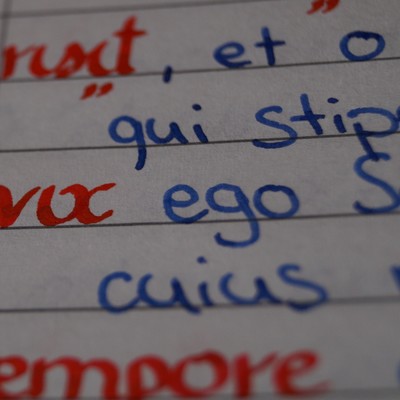 , et o
" qui stip
vox ego S
cuius
empore